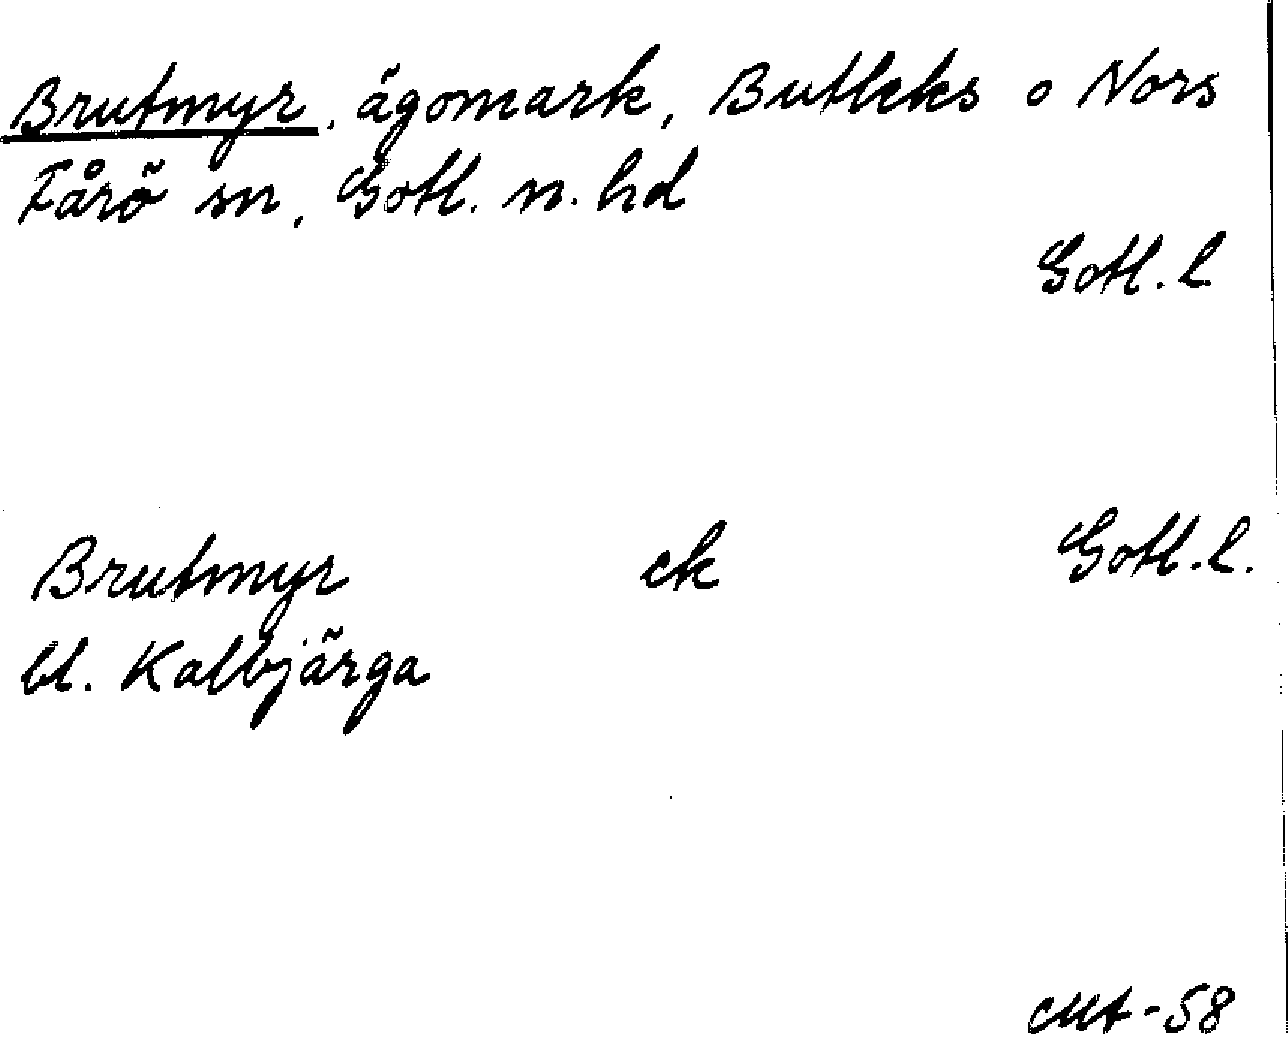 Brutmyr, ägomark, Butleks o Nors
Fårö sn, Gotl. n. hd
Gotl. l.
Brutmyr ek Gotl. l.
bl. Kalbjärga
MA-58